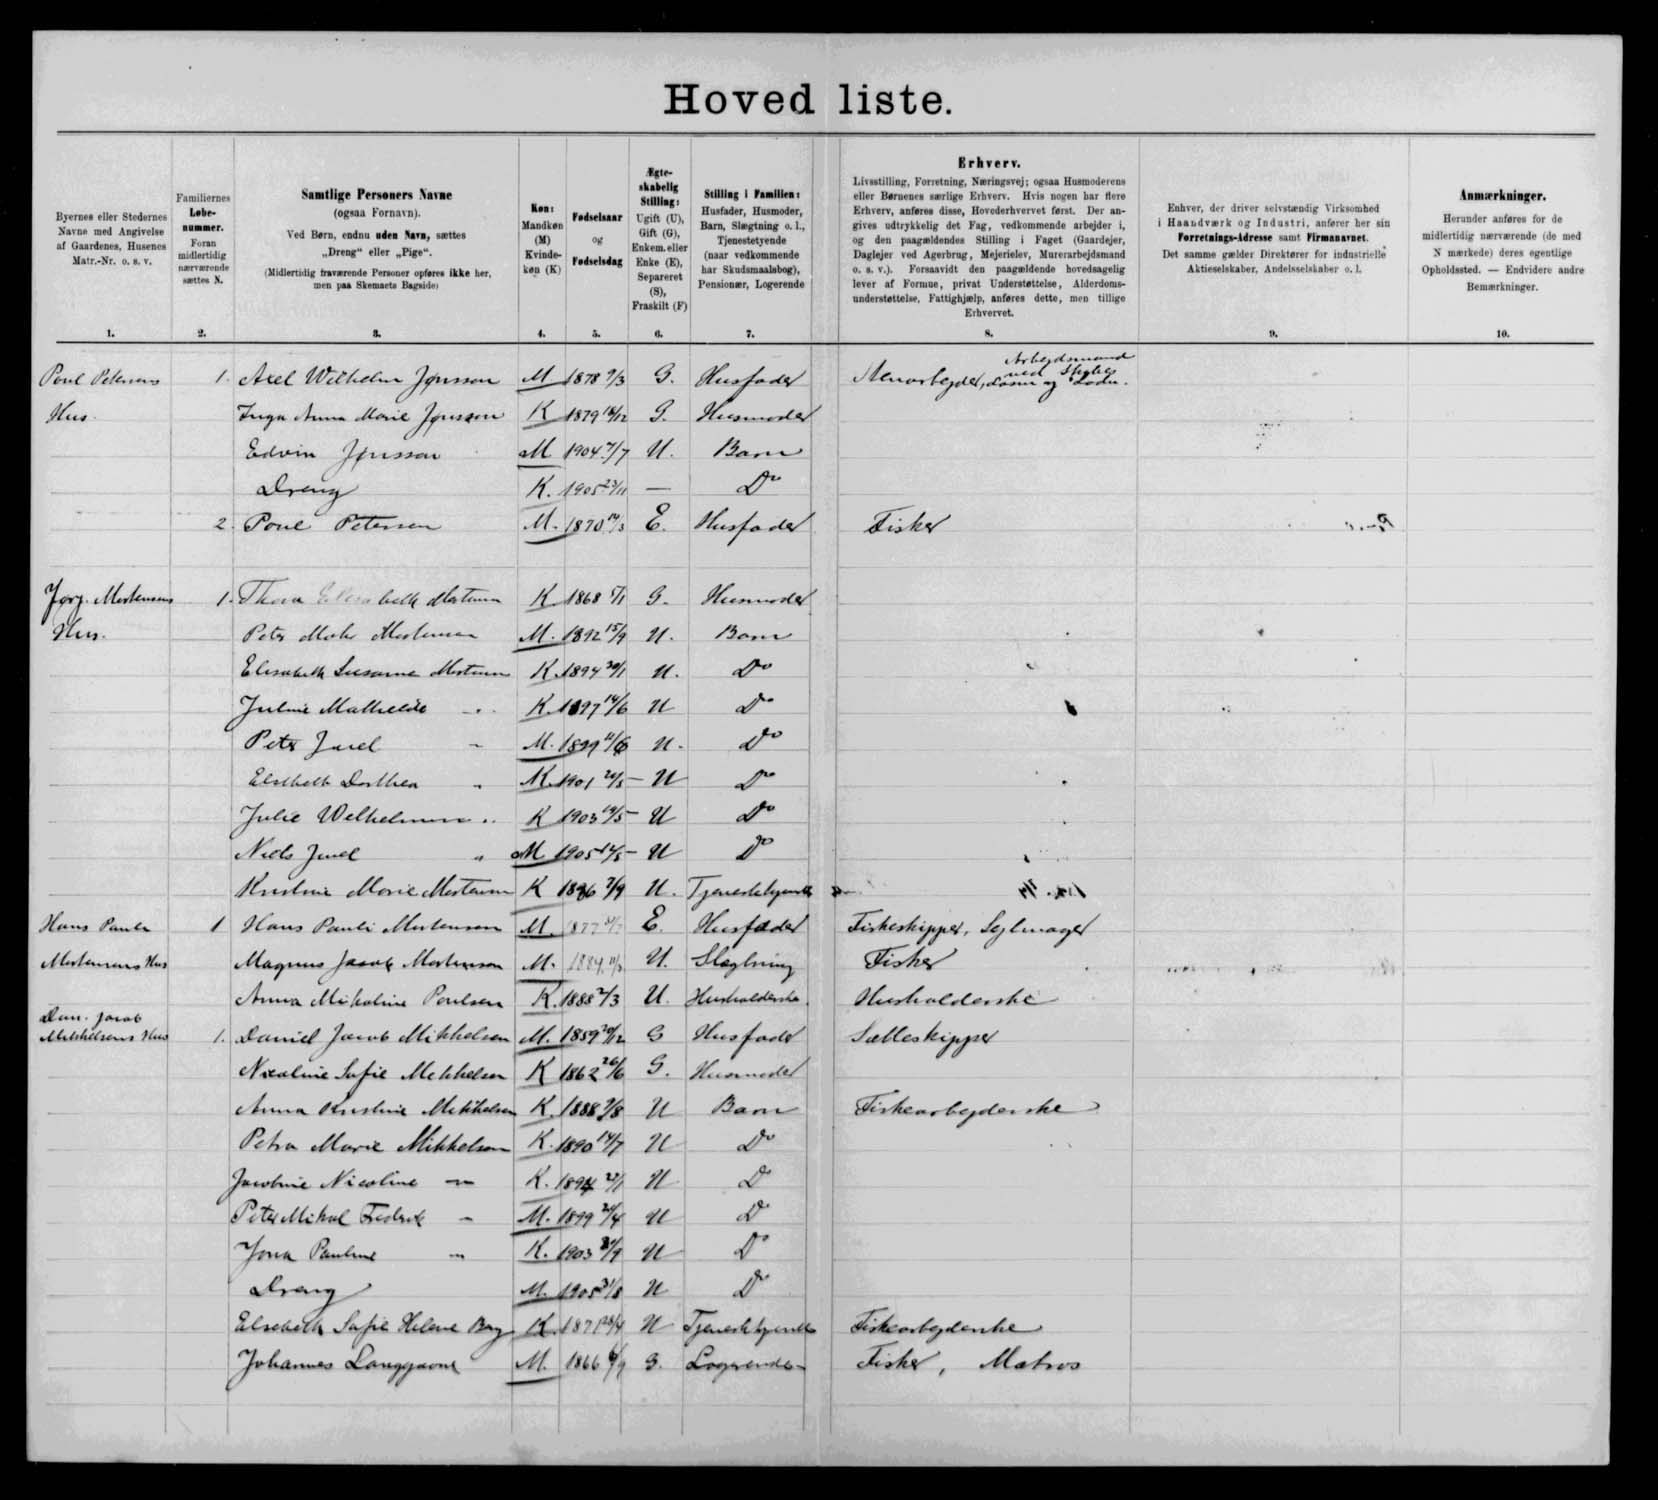 Hovedliste.
Byernes eller Stedernes
Navne med Angivelse
af Gaardenes, Husenes
Matr.-Nr. o. s. v.
1.
Familiernes
Løbe-
nummer.
Foran
midlertidig
nærværende
sættes N.
2.
Samtlige Personers Navne
(ogsaa Fornavn).
Ved Børn, endnu uden Navn, sættes
„Dreng“ eller „Pige“.
(Midlertidig fraværende Personer opføres ikke her,
men paa Skemaets Bagside)
3.
Køn:
Mandkøn
(M)
Kvinde-
køn (K)
4.
Fødselsaar
og
Fødselsdag
5.
Ægte-
skabelig
Stilling:
Ugift (U),
Gift (G),
Enkem. eller
Enke (E),
Separeret
(S),
Fraskilt (F)
6.
Stilling i Familien:
Husfader, Husmoder,
Barn, Slægtning o. l.,
Tjenestetyende
(naar vedkommende
har Skudsmaalsbog),
Pensionær, Logerende
7.
Erhverv.
Livsstilling, Forretning, Næringsvej; ogsaa Husmoderens
eller Børnenes særlige Erhverv. Hvis nogen har flere
Erhverv, anføres disse, Hovederhvervet først. Der an-
gives udtrykkelig det Fag, vedkommende arbejder i,
og den paagældendes Stilling i Faget (Gaardejer,
Daglejer ved Agerbrug, Mejerielev, Murerarbejdsmand
o. s. v.). Forsaavidt den paagældende hovedsagelig
lever af Formue, privat Understøttelse, Alderdoms-
understøttelse, Fattighjælp, anføres dette, men tillige
Erhvervet.
8.
Enhver, der driver selvstændig Virksomhed
i Haandværk og Industri, anfører her sin
Forretnings-Adresse samt Firmanavnet.
Det samme gælder Direktører for industrielle
Aktieselskaber, Andelsselskaber o. l.
9.
Anmærkninger.
Herunder anføres for de
midlertidig nærværende (de med
N mærkede) deres egentlige
Opholdssted. — Endvidere andre
Bemærkninger.
10.
Poul Petersens 1. Axel Wilhelm Jønsson M 1878 9/3 G. Husfader Stenarbejder, Arbejdsmand
ved Skibes Losse og Lodn.
Hus. Inga Anna Marie Jønsson K 1879 /12 G. Husmoder
Edvin Jønsson M 1904 /7 U. Barn
Dreng K. 1905 23/11 — Do
2. Poul Petersen M. 1870 14/3 E. Husfader Fisker
Jørg. Mortensens 1. Thora Elisabeth Mortensen K 1868 5/1 G. Husmoder
Hus. Peter Mortensen M. 1892 15/9 U. Barn
Elisabeth Susanne Mortensen K. 1894 /1 U. Do
Juline Mathilde " K. 1897 14/6 U Do
Peter Juel " M. 1899 11/6 U. Do
Elsebeth Dorthea " K. 1901 /5 U Do
Julie Wilhelmine " K 1903 19/5 U Do
Niels Juel " M 1905 14/5 U Do
Kristine Marie Mortensen K 1886 7/9 U. Tjenestetyende
Hans Pauli 1 Hans Pauli Mortensen M. 1877 E. Husfader Fiskeskipper, Sejlmager
Mortensens Hus Magnus Jacob Mortensen M. 1884 11/3 U. Slægtning Fisker
Anna Mikaline Poulsen K. 1888 2/3 U. Husholderske Husholderske
Dan. Jacob
Mikkelsens Hus 1. Daniel Jacob Mikkelsen M. 1859 /12 G Husfader Sætteskipper
Nicoline Sofie Mikkelsen K 1862 26/6 G. Husmoder
Anna Kristine Mikkelsen K. 1888 7/8 U Barn Fiskearbejderske
Petra Marie Mikkelsen K. 1890 14/7 U Do
Jacobine Nicoline " K. 1894 /1 U Do
Peter Mikal Fredrik " M. 1899 24/4 U Do
Jona Pauline " K. 1903 /9 U Do
Dreng M. 1905 31/8 U Do
Elsebeth Sofie Helene Berg K. 1871 /4 U Tjenestetyende Fiskearbejderske
Johannes Langgaard M. 1866 6/9 G. Logerende Fisker, Matros